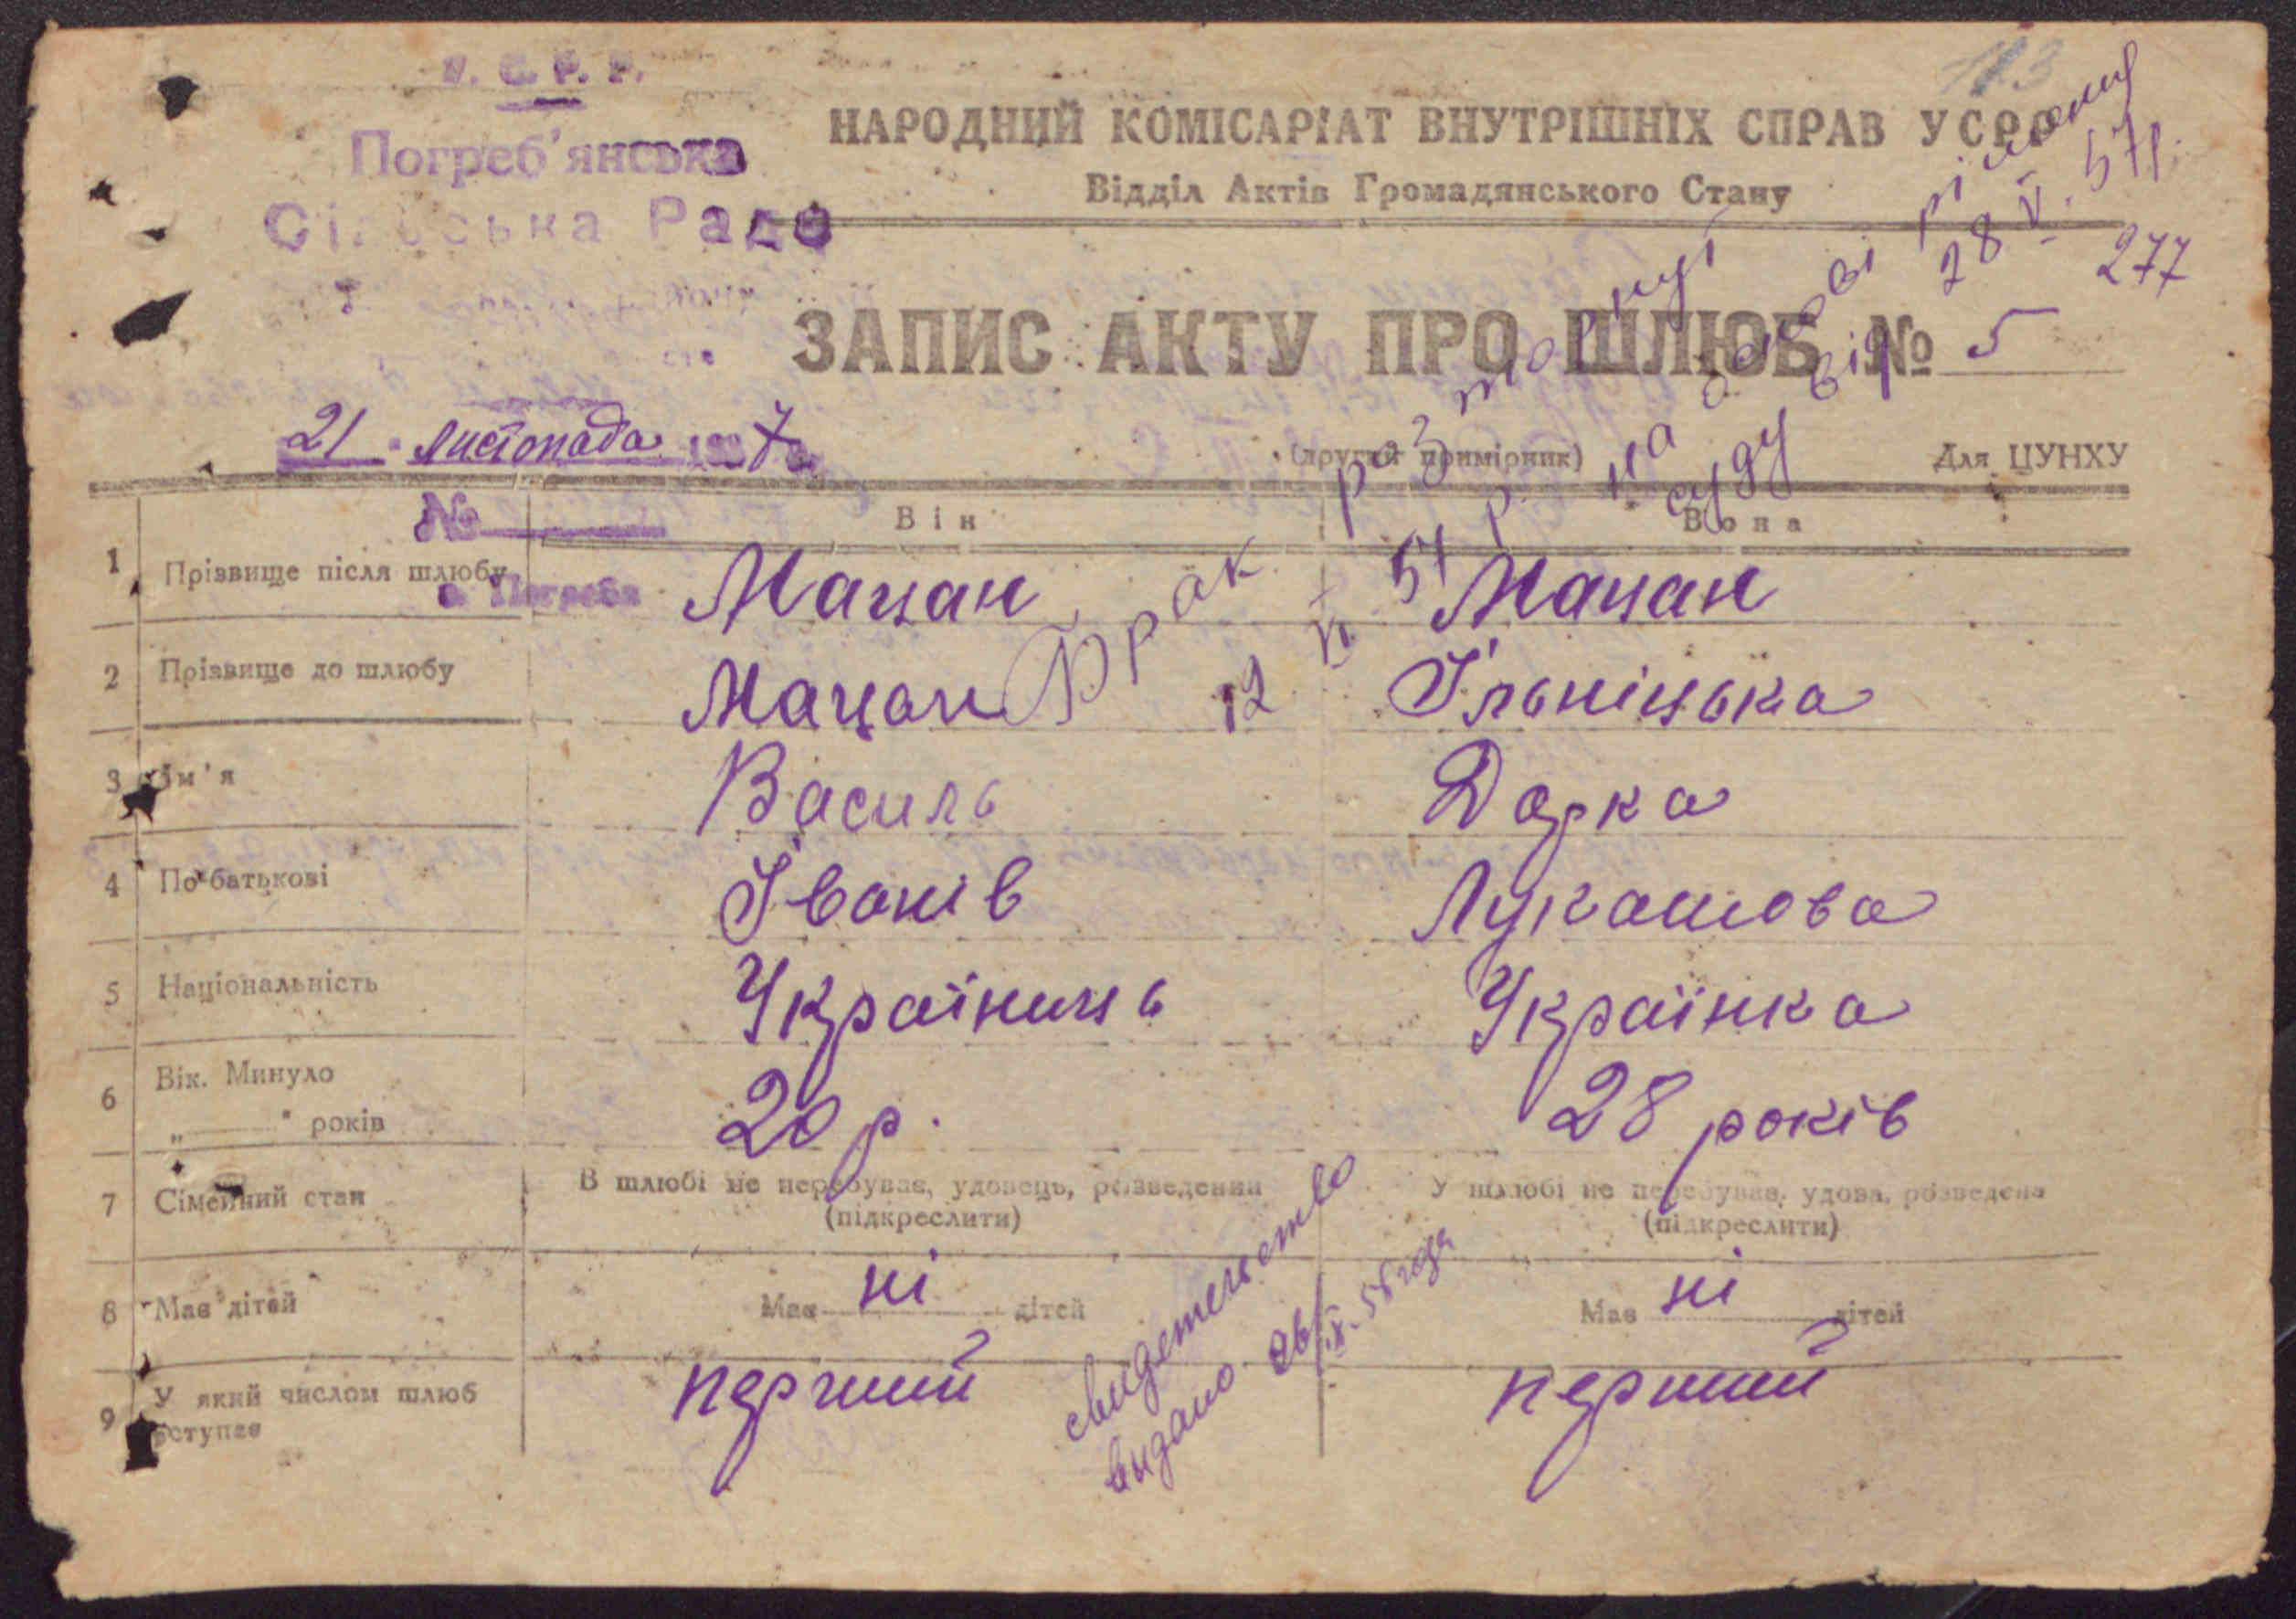 У. С. Р. Р.
Погреб'янська
Сільська Рада
НАРОДНИЙ КОМІСАРІАТ ВНУТРІШНІХ СПРАВ УСРР
Відділ Актів Громадянського Стану
113
277
ЗАПИС АКТУ ПРО ШЛЮБ № 5
21 листопада 1937
(другий примірник) Для ЦУНХУ
№
с. Погреби
Він Вона
1 Прізвище після шлюбу Мацан Мацан
2 Прізвище до шлюбу Мацан Ільніцька
3 Ім'я Василь Дарка
4 По батькові Іванів Лукашова
5 Національність Українець Українка
6 Вік. Минуло
„ " років 20 р. 28 років
7 Сімейний стан В шлюбі не перебував, удовець, розведений (підкреслити) У шлюбі не перебував, удова, розведена (підкреслити)
8 Має дітей Має ні дітей Має ні дітей
9 У який числом шлюб вступає перший перший
Брак розторгнут
на основі рішення
суду від 28 V. 57 р.
свидетельство
видано